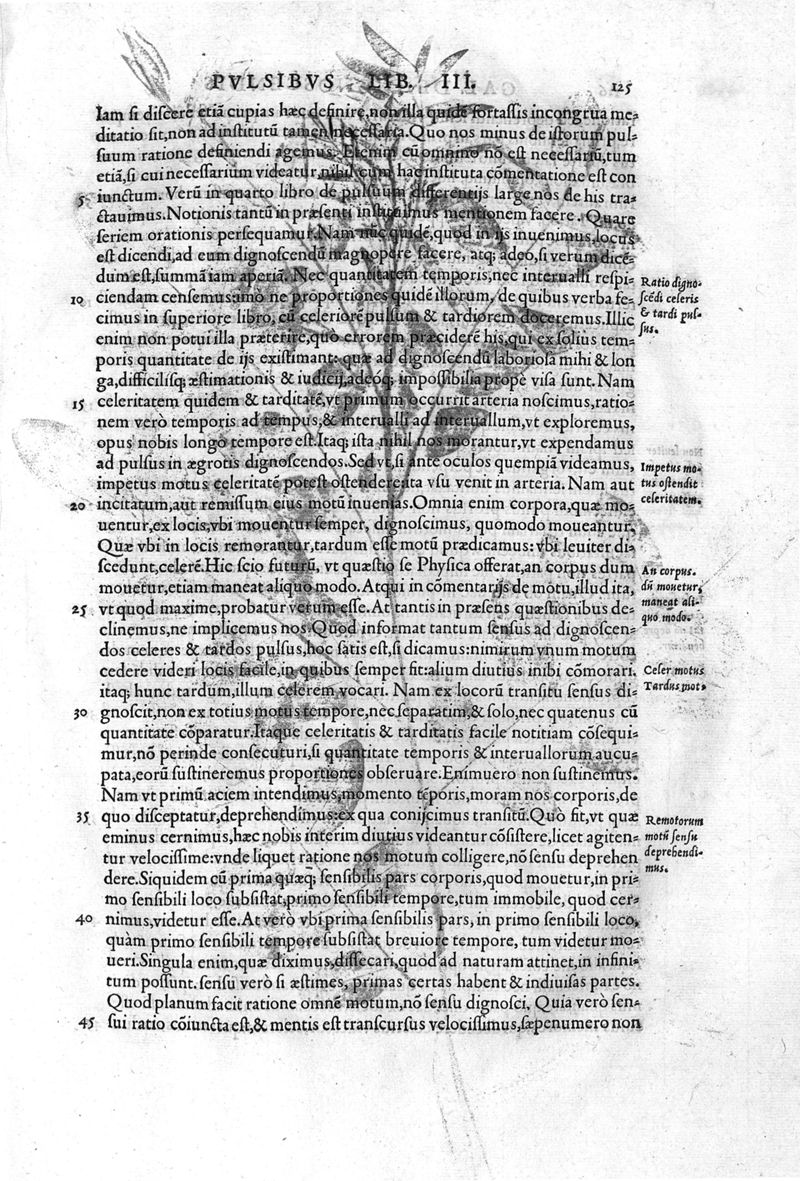 PVLSIBVS LIB. III. 125
Iam si discere etiā cupias hæc definire, non illa quidē fortassis incongrua me-
ditatio sit, non ad institutū tamen necessaria. Quo nos minus de istorum pul-
suum ratione definiendi agemus. Etenim cū omnino nō est necessariū, tum
etiā, si cui necessarium videatur, nihil cum hac instituta cōmentatione est con
5 iunctum. Verū in quarto libro de pulsuum differentijs large nos de his tra-
ctauimus. Notionis tantū in præsenti instituimus mentionem facere. Quare
seriem orationis persequamur. Nam nūc quidē, quod in ijs inuenimus, locus
est dicendi, ad eum dignoscendū magnopere facere, atq; adeo, si verum dicē-
dum est, summā iam aperiā. Nec quantitatem temporis, nec interualli respi-
10 ciendam censemus: imò ne proportiones quidē illorum, de quibus verba fe-
cimus in superiore libro, cū celeriorē pulsum & tardiorem doceremus. Illic
enim non potui illa præterire, quò errorem præciderē his, qui ex solius tem-
poris quantitate de ijs existimant: quæ ad dignoscendū laboriosa mihi & lon
ga, difficilisq; æstimationis & iudicij, adeoq; impossibilia propè visa sunt. Nam
15 celeritatem quidem & tarditatē, vt primum occurrit arteria noscimus, ratio-
nem verò temporis ad tempus, & interualli ad interuallum, vt exploremus,
opus nobis longo tempore est. Itaq; ista nihil nos morantur, vt expendamus
ad pulsus in ægrotis dignoscendos. Sed vt, si ante oculos quempiā videamus,
impetus motus celeritatē potest ostendere: ita vsu venit in arteria. Nam aut
20 incitatum, aut remissum eius motū inuenias. Omnia enim corpora, quæ mo-
uentur, ex locis, vbi mouentur semper, dignoscimus, quomodo moueantur.
Quæ vbi in locis remorantur, tardum esse motū prædicamus: vbi leuiter di-
scedunt, celerē. Hic scio futurū, vt quæstio se Physica offerat, an corpus dum
mouetur, etiam maneat aliquo modo. Atqui in cōmentarijs de motu, illud ita,
25 vt quod maxime, probatur verum esse. At tantis in præsens quæstionibus de-
clinemus, ne implicemus nos. Quod informat tantum sensus ad dignoscen-
dos celeres & tardos pulsus, hoc satis est, si dicamus: nimirum vnum motum
cedere videri locis facile, in quibus semper fit: alium diutius inibi cōmorari.
itaq; hunc tardum, illum celerem vocari. Nam ex locorū transitu sensus di-
30 gnoscit, non ex totius motus tempore, nec separatim, & solo, nec quatenus cū
quantitate cōparatur. Itaque celeritatis & tarditatis facile notitiam cōsequi-
mur, nō perinde consecuturi, si quantitate temporis & interuallorum aucu-
pata, eorū sustineremus proportiones obseruare. Enimuero non sustinemus.
Nam vt primū aciem intendimus, momento tēporis, moram nos corporis, de
35 quo disceptatur, deprehendimus: ex qua conijcimus transitū. Quò fit, vt quæ
eminus cernimus, hæc nobis interim diutius videantur cōsistere, licet agiten-
tur velocissime: vnde liquet ratione nos motum colligere, nō sensu deprehen
dere. Siquidem cū prima quæq; sensibilis pars corporis, quod mouetur, in pri-
mo sensibili loco subsistat, primo sensibili tempore, tum immobile, quod cer-
40 nimus, videtur esse. At verò vbi prima sensibilis pars, in primo sensibili loco,
quàm primo sensibili tempore subsistat breuiore tempore, tum videtur mo-
ueri. Singula enim, quæ diximus, dissecari, quod ad naturam attinet, in infini-
tum possunt. sensu verò si æstimes, primas certas habent & indiuisas partes.
Quod planum facit ratione omnē motum, nō sensu dignosci. Quia verò sen-
45 sui ratio cōiuncta est, & mentis est transcursus velocissimus, sæpenumero non
Ratio digno-
scēdi celeris
& tardi pul-
sus.
Impetus mo-
tus ostendit
celeritatem.
An corpus,
dū mouetur,
maneat ali-
quo modo.
Celer motus
Tardus mot9
Remotorum
motū sensu
deprehendi-
mus.